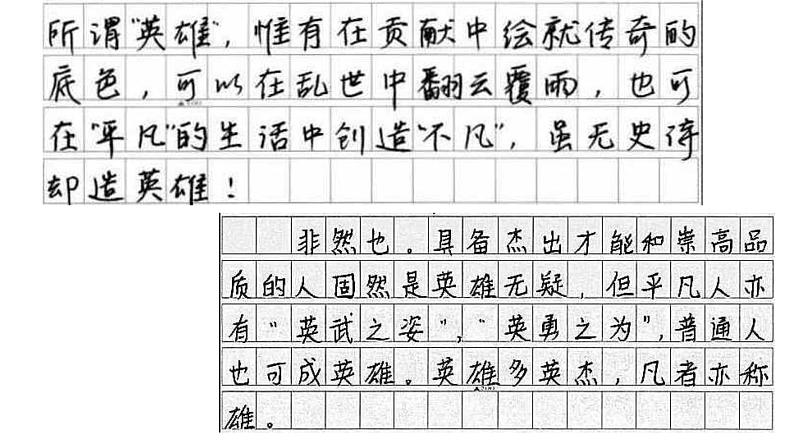 所谓"英雄"，惟有在贡献中绘就传奇的
底色，可以在乱世中翻云覆雨，也可
在"平凡"的生活中创造"不凡"，虽无史诗
却造英雄！
非然也。具备杰出才能和崇高品
质的人固然是英雄无疑，但平凡人亦
有"英武之姿"，"英勇之为"，普通人
也可成英雄。英雄多英杰，凡者亦称
雄。